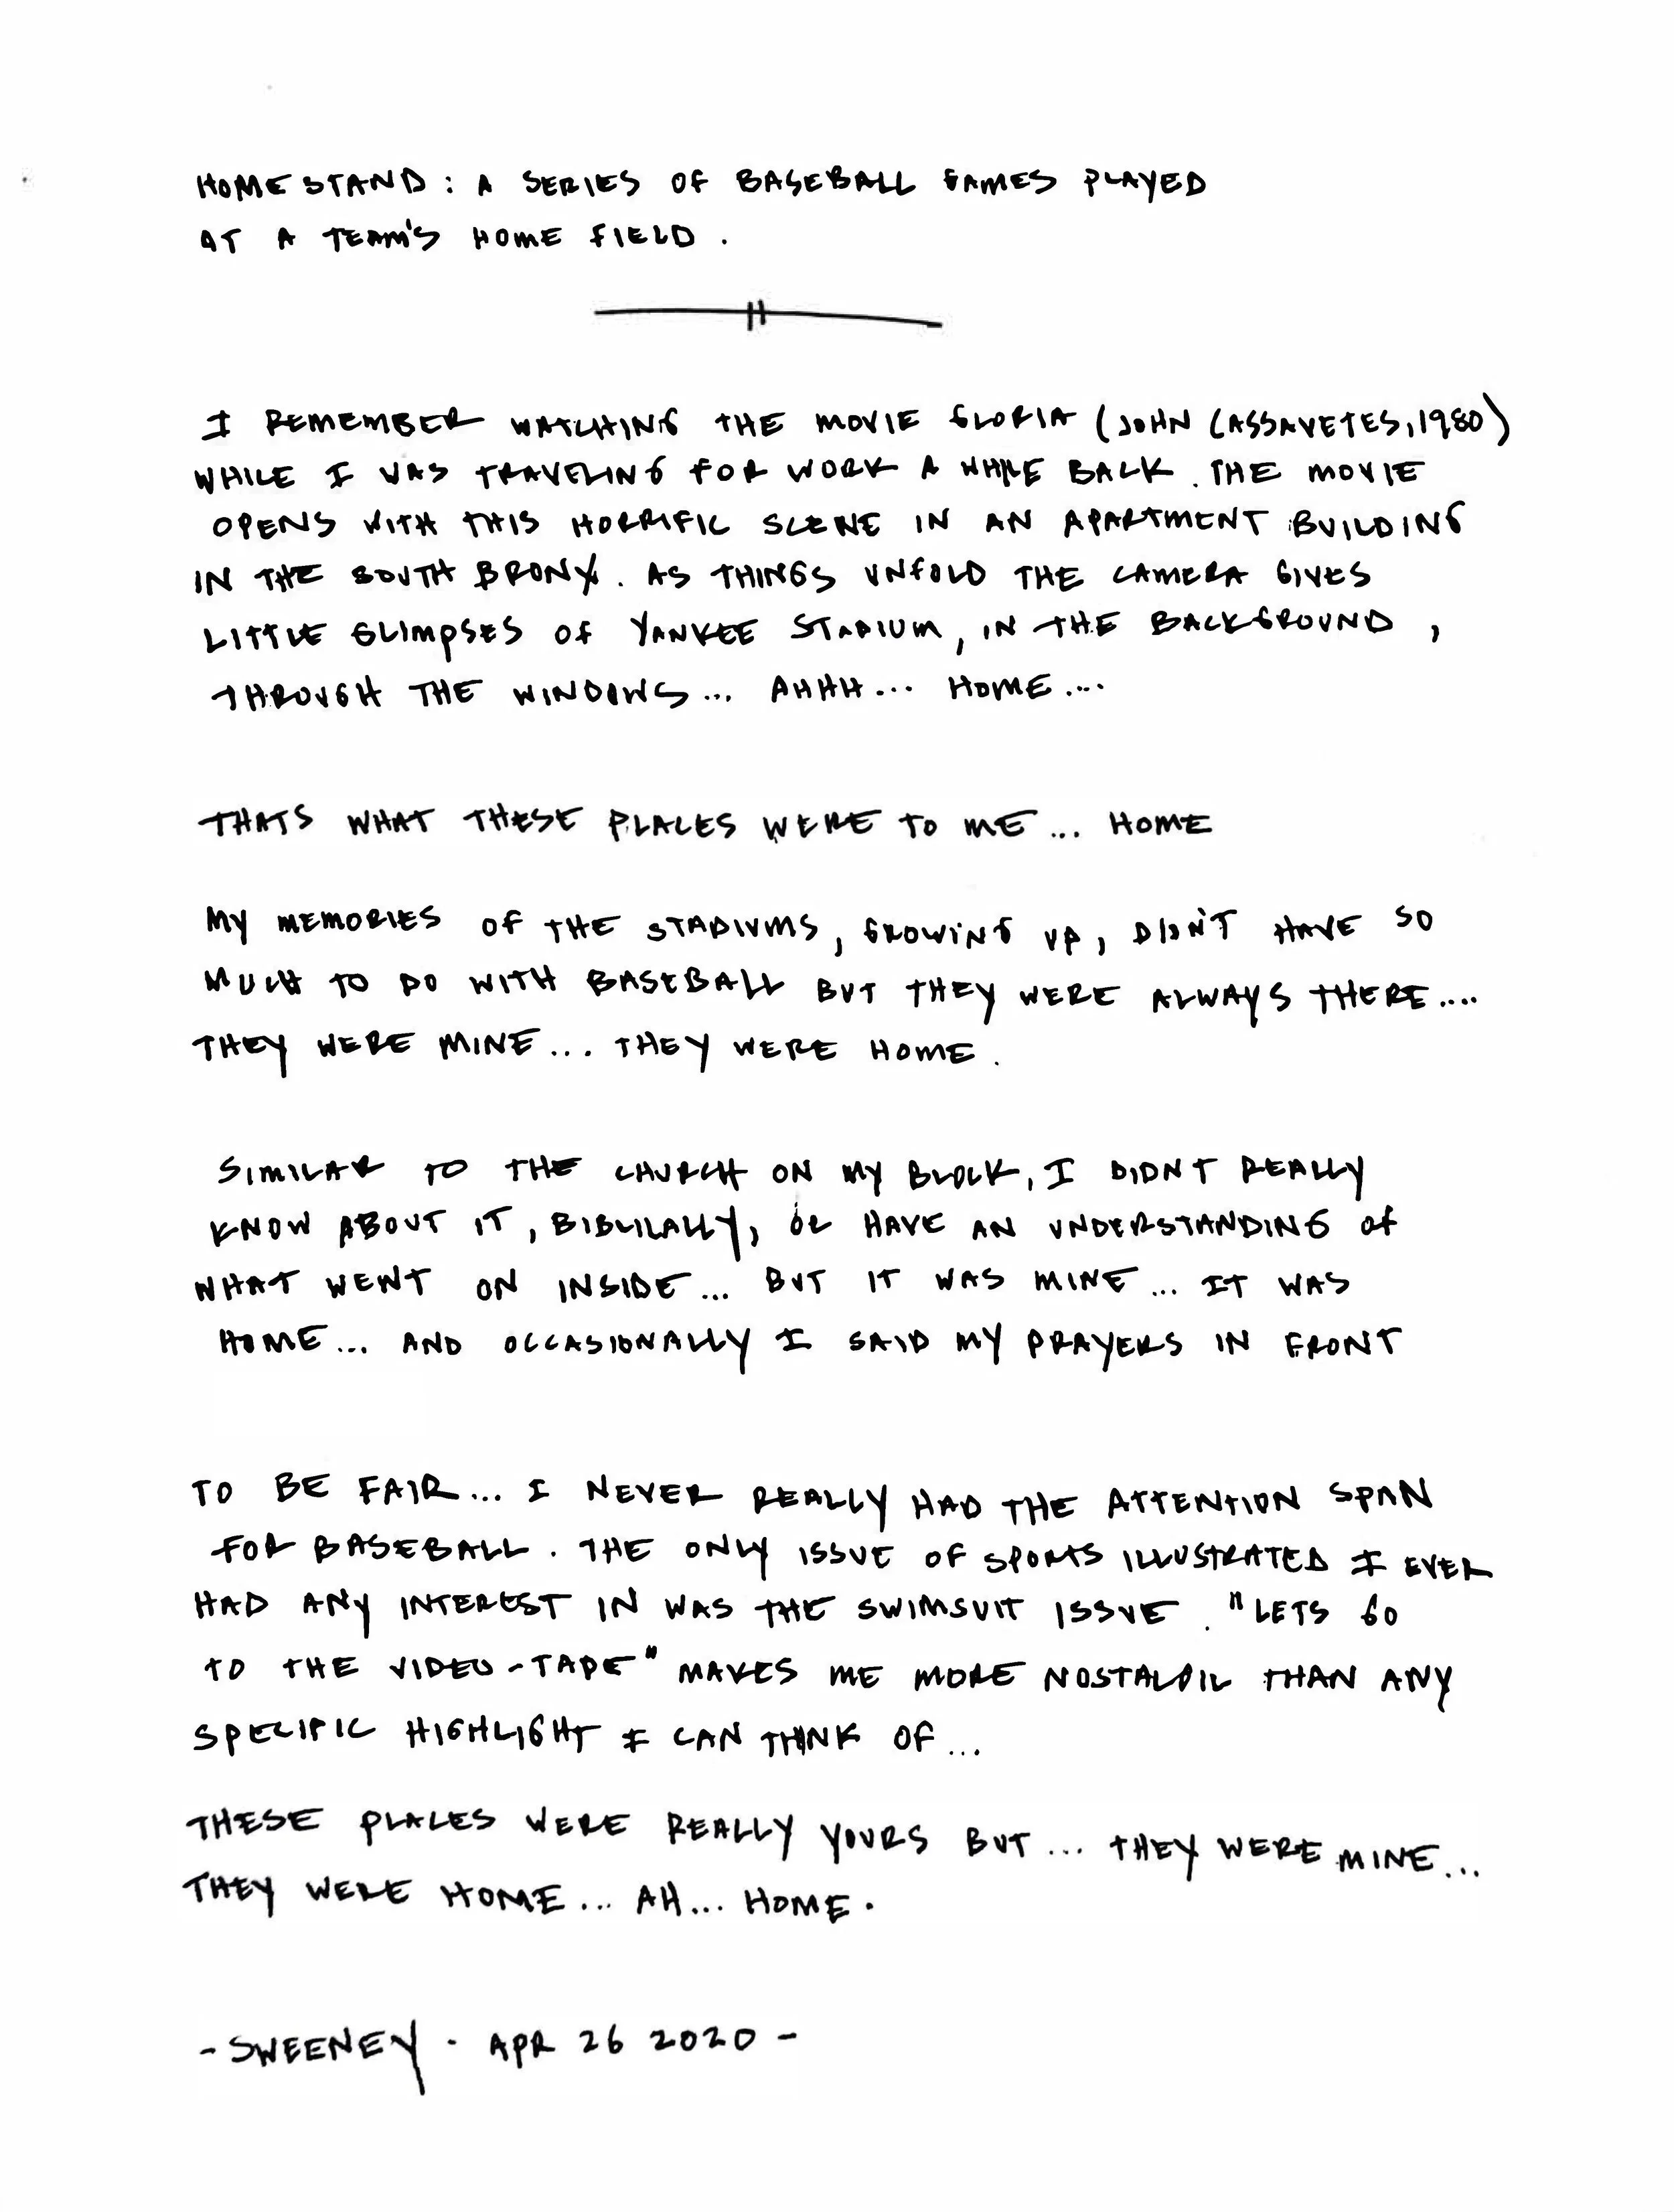 HOMESTAND: A SERIES OF BASEBALL GAMES PLAYED
AT A TEAM'S HOME FIELD.
I REMEMBER WATCHING THE MOVIE GLORIA (JOHN CASSAVETES, 1980)
WHILE I WAS TRAVELING FOR WORK A WHILE BACK. THE MOVIE
OPENS WITH THIS HORRIFIC SCENE IN AN APARTMENT BUILDING
IN THE SOUTH BRONX. AS THINGS UNFOLD THE CAMERA GIVES
LITTLE GLIMPSES OF YANKEE STADIUM, IN THE BACKGROUND,
THROUGH THE WINDOWS... AHHH... HOME....
THATS WHAT THESE PLACES WERE TO ME... HOME
MY MEMORIES OF THE STADIUMS, GROWING UP, DIDN'T HAVE SO
MUCH TO DO WITH BASEBALL BUT THEY WERE ALWAYS THERE....
THEY WERE MINE... THEY WERE HOME.
SIMILAR TO THE CHURCH ON MY BLOCK, I DIDNT REALLY
KNOW ABOUT IT, BIBLICALLY, OR HAVE AN UNDERSTANDING OF
WHAT WENT ON INSIDE... BUT IT WAS MINE... IT WAS
HOME... AND OCCASIONALLY I SAID MY PRAYERS IN FRONT
TO BE FAIR... I NEVER REALLY HAD THE ATTENTION SPAN
FOR BASEBALL. THE ONLY ISSUE OF SPORTS ILLUSTRATED I EVER
HAD ANY INTEREST IN WAS THE SWIMSUIT ISSUE. "LETS GO
TO THE VIDEO-TAPE" MAKES ME MORE NOSTALGIC THAN ANY
SPECIFIC HIGHLIGHT I CAN THINK OF...
THESE PLACES WERE REALLY YOURS BUT... THEY WERE MINE...
THEY WERE HOME... AH... HOME.
- SWEENEY · APR 26 2020 -